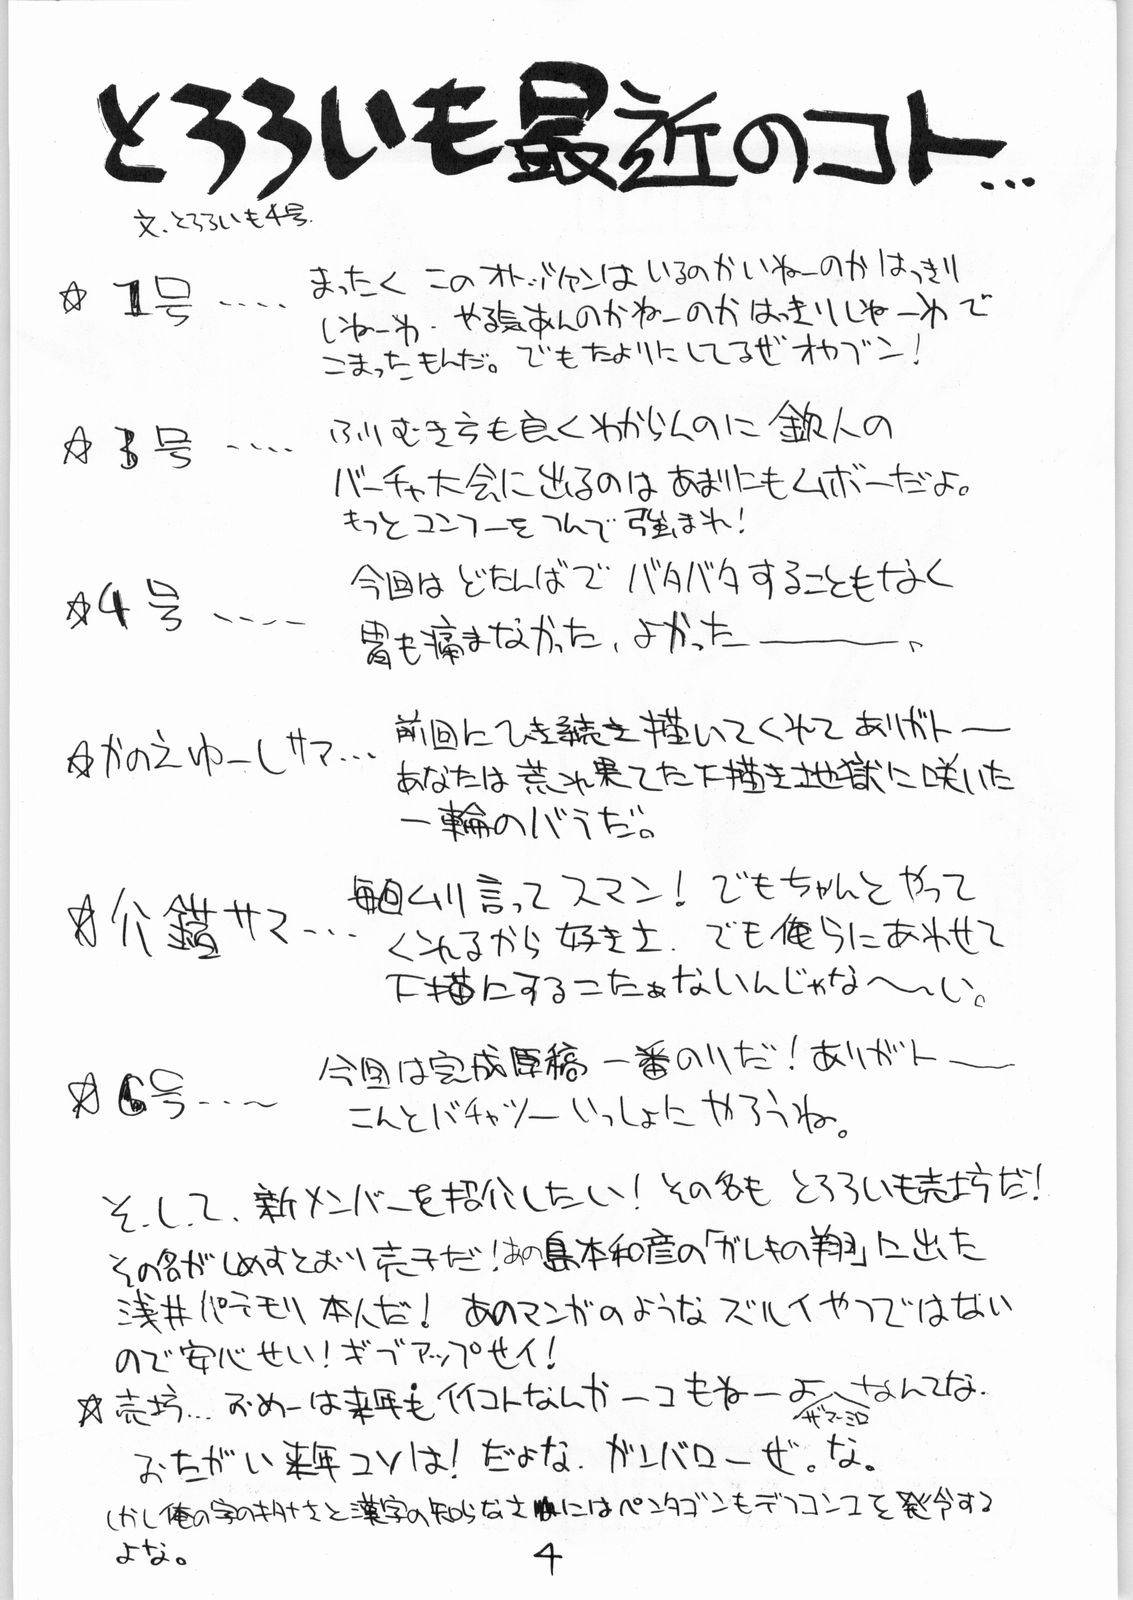 とろろいも最近のコト…
文、とろろいも4号.
☆ 1号 ‥‥ まったく このオトッツァンは いるのかいねーのか はっきり
しねーわ. やる気あんのかねーのか はっきりしねーわ で
こまったもんだ。でもたよりにしてるぜ オヤブン!
☆ 3号 ‥‥ ふりむき方も良くわからんのに 鉄人の
バーチャ大会に出るのは あまりにもムボーだよ。
もっとコンフーをつんで 強まれ!
☆4号 ‥‥ 今回は どたんばで バタバタすることもなく
胃も痛まなかった、よかった———、
☆かのえゆーしサマ… 前回にひき続き 描いてくれて ありガトー
あなたは 荒れ果てた 下描き地獄に咲いた
一輪のバラだ。
☆介錯サマ… 毎回ムリ言って スマン! でもちゃんと やって
くれるから 好きさ. でも俺らにあわせて
下描にするこたぁないんじゃな〜〜い。
☆ 6号‥‥ 今回は完成原稿 一番のりだ! ありガトー
こんどバチャツー いっしょに やろうね。
そ.し.て、新メンバーを紹介したい! その名も とろろいも売坊だ!
その名がしめすとおり 売子だ! あの 島本和彦の「ガレキの翔」に出た
浅井パラモリ 本人だ! あのマンガのような ズルイやつではない
ので 安心せい! ギブアップせイ!
☆売坊… おめーは来年も イイコトなんか 一コ もねーよ なんてな.
ザマーミロ
おたがい 来年コソは! だよな. ガンバローぜ。な。
しかし俺の字のキタナさと漢字の知らなさにはペンタゴンもデフコン1を発令する
よな。
4